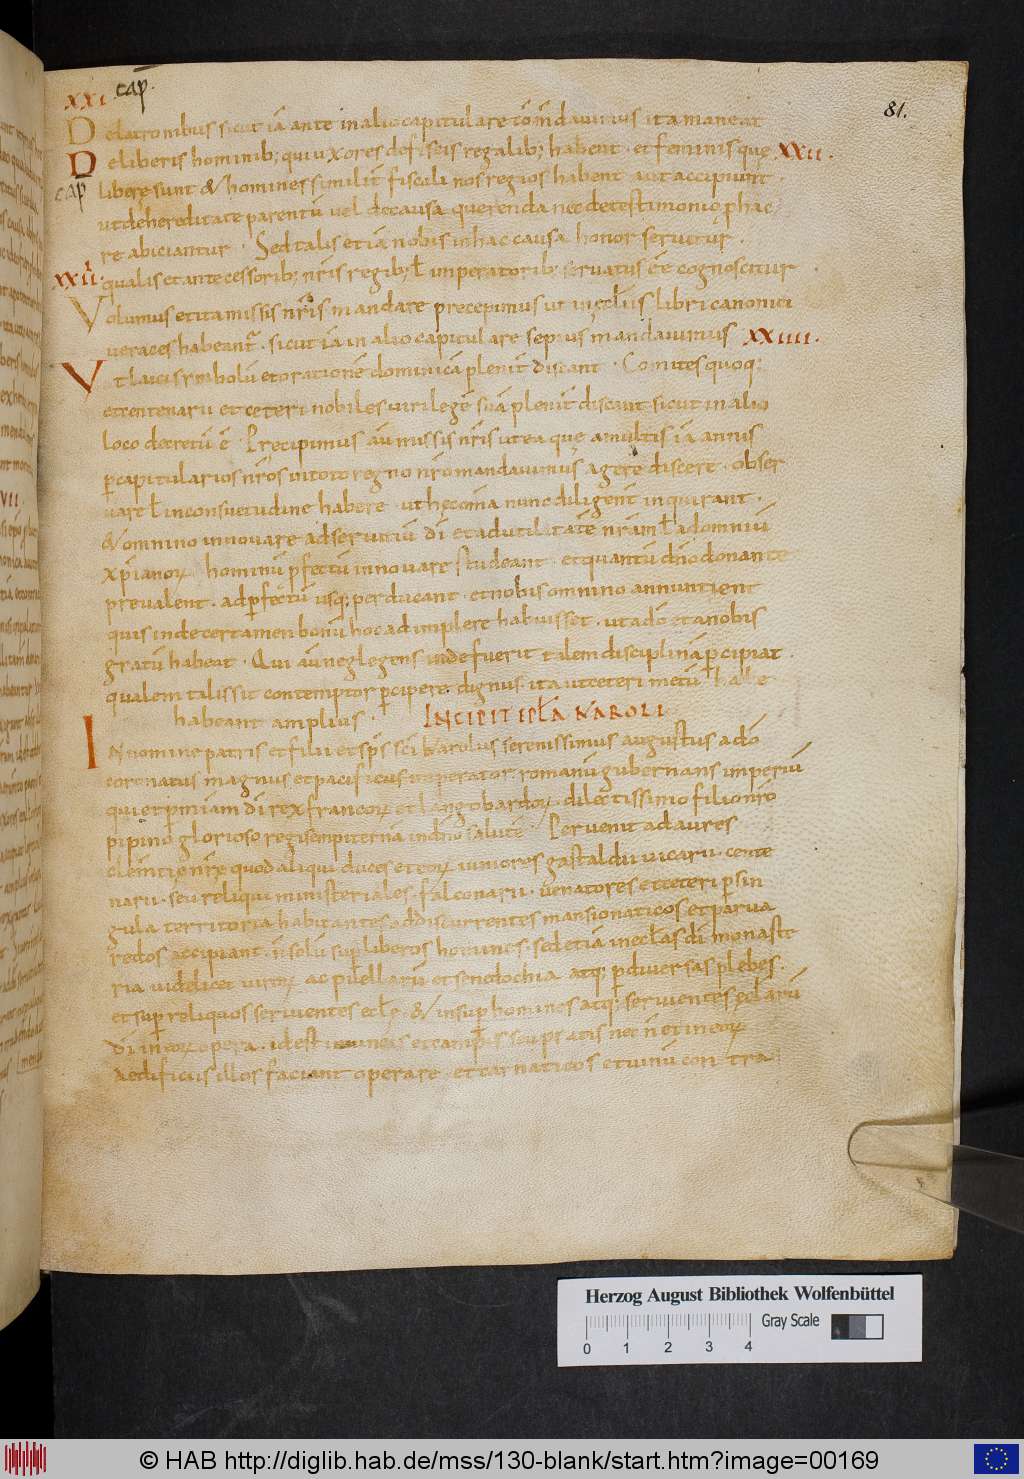 XXI. cap̄.
81.
De latronibus sicut iā ante in alio capitulare cōm̄dauimus ita maneat
De liberis hominib; qui uxores de fiscis regalib; habent. et feminis que XXII.
cap̄
libere sunt & homines similit̄ fiscali nos regios habent aut accipiunt.
ut de hereditate parentū uel de causa querenda nec de testimonio p hac
re abiciantur. Sed talis etiā nobis in hac causa honor seruetur.
XXIII.
qualis et antecessorib; nr̄is regib; ł imperatorib; seruatus ēe cognoscitur
Volumus et ita missis nr̄is mandare precepimus ut in ecłiis libri canonici
ueraces habeant̄. sicut iā in alio capitulare sepius mandauimus XXIIII.
Ut laici simbolū et orationē dominicā plenit̄ discant. Comites quoq;
et centenarii et ceteri nobiles uiri legē suā plenit̄ discant sicut in alio
loco decretū ē. Precipimus aū missis nr̄is ut ea que a multis iā annis
p capitularios nr̄os in toto regno nr̄o mandauimus agere discere. obser
uare ł in consuetudine habere. ut hec om̄ia nunc diligent̄ inquirant.
& omnino innouare ad seruitiū dī et ad utilitatē nr̄am ł ad omniū
xp̄ianor hominū pfectū innouare studeant et quantū dn̄o donante
preualent. ad pfectū usq; perducant. et nobis omnino annuntient
quis inde certamen bonū hoc adimplere habuisset. ut a dō et a nobis
gratū habeat. Qui aū neglegens inde fuerit talem disciplinā pcipiat.
qualem talis sit contemptor pcipere dignus. ita ut ceteri metū
habeant amplius. INCIPIT EPŁA KAROLI
In nomine patris et filii et sp̄s sc̄i Karolus serenissimus augustus a dō
coronatus magnus et pacificus imperator romanū gubernans imperiū
qui et p miam dī rex francor et langobardor. dilectissimo filio nr̄o
pipino glorioso regi sempiterna in dn̄o salutē. Peruenit ad aures
clem̄tie nr̄e quod aliqui duces et eor iuniores gastaldii uicarii. cente
narii. seu reliqui ministeriales. falconarii. uenatores et ceteri p sin
gula territoria habitantes ac discurrentes mansionaticos et parua
redos accipiant. n̄ solū sup liberos homines. sed etiā in ecłas dī monaste
ria uidelicet uiror ac puellarū et senodochia atq; p diuersas plebes.
et sup reliquos seruientes ecłe. & insup homines atq; seruientes ecłarū
dī in eor opera. id est in uineis et campis seu pratis nec n̄ et in eor
Aedificiis illos faciant operare. et carnaticos et uinū contra
Herzog August Bibliothek Wolfenbüttel
Gray Scale
0 1 2 3 4
© HAB http://diglib.hab.de/mss/130-blank/start.htm?image=00169